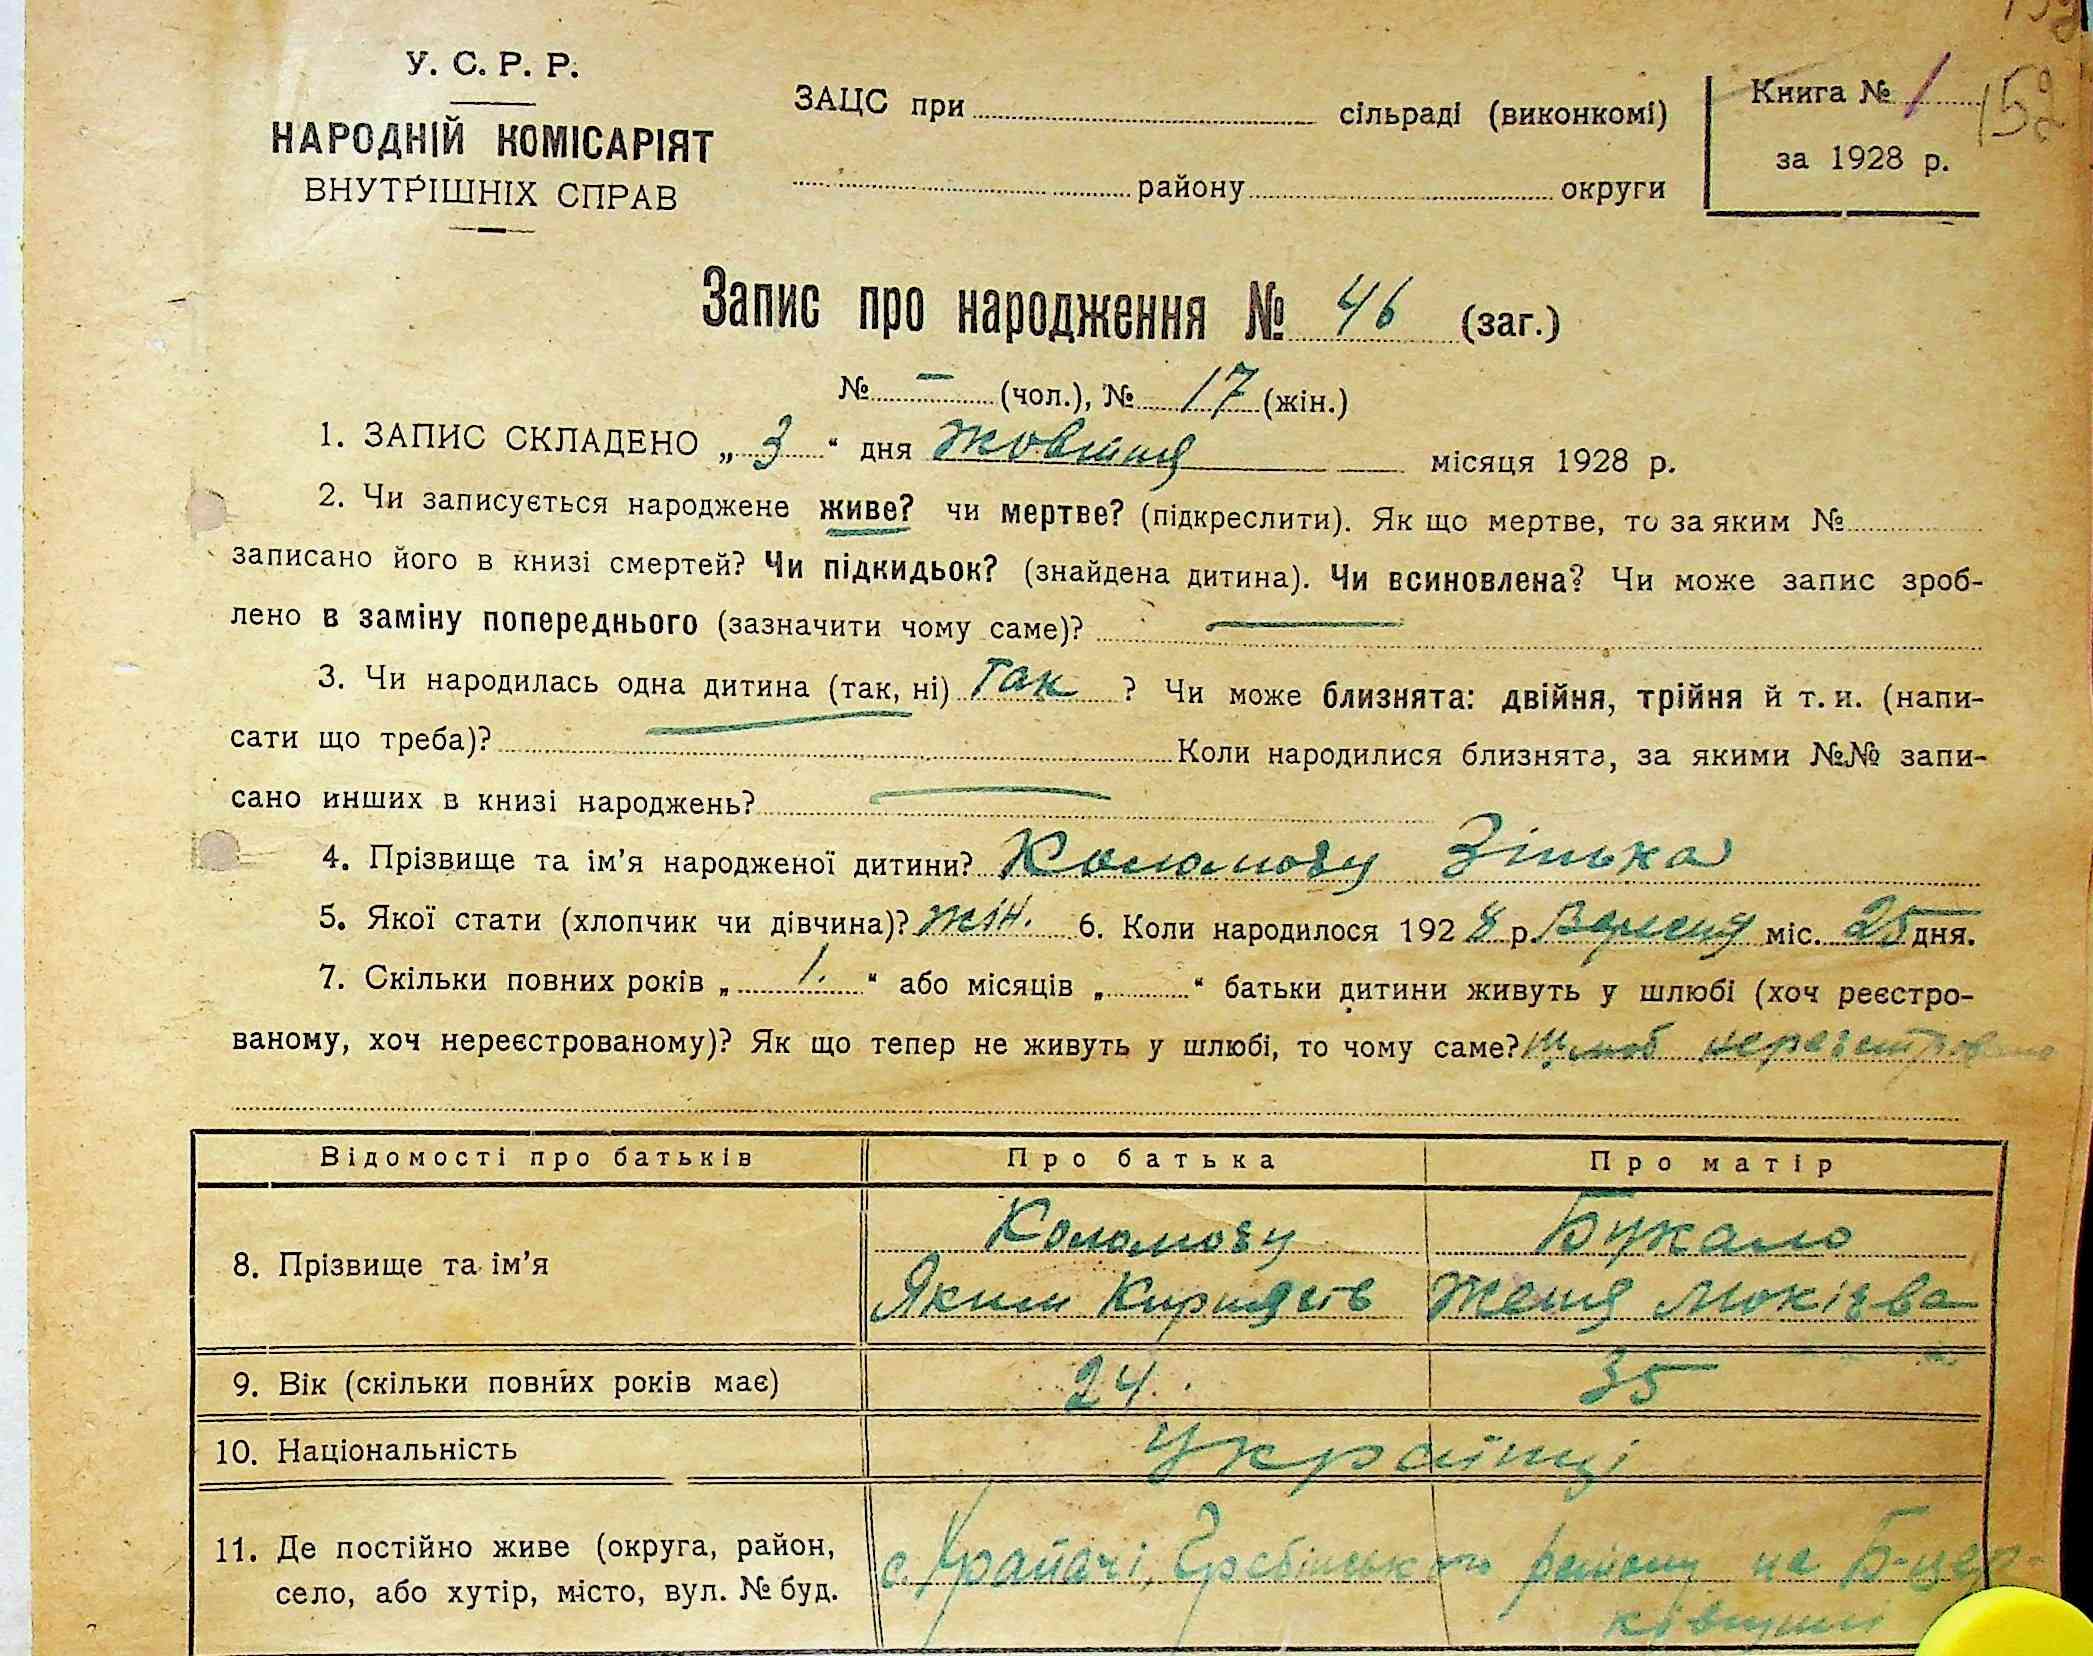 У. С. Р. Р.
НАРОДНІЙ КОМІСАРІЯТ
ВНУТРІШНІХ СПРАВ
ЗАЦС при сільраді (виконкомі)
району округи
Книга № 1
за 1928 р.
152
Запис про народження № 46 (заг.)
№ — (чол.), № 17 (жін.)
1. ЗАПИС СКЛАДЕНО „ 3 “ дня Жовтня місяця 1928 р.
2. Чи записується народжене живе? чи мертве? (підкреслити). Як що мертве, то за яким №
записано його в книзі смертей? Чи підкидьок? (знайдена дитина). Чи всиновлена? Чи може запис зроб-
лено в заміну попереднього (зазначити чому саме)? —
3. Чи народилась одна дитина (так, ні) так ? Чи може близнята: двійня, трійня й т. и. (напи-
сати що треба)? Коли народилися близнята, за якими №№ запи-
сано инших в книзі народжень? —
4. Прізвище та ім’я народженої дитини? Коломієц Зінька
5. Якої стати (хлопчик чи дівчина)? жін. 6. Коли народилося 1928 р. Вересня міс. 25 дня.
7. Скільки повних років „ 1. “ або місяців „ “ батьки дитини живуть у шлюбі (хоч реєстро-
ваному, хоч нереєстрованому)? Як що тепер не живуть у шлюбі, то чому саме? Шлюб
Відомості про батьків Про батька Про матір
8. Прізвище та ім’я
Букало
Яким Женя Мокієва
9. Вік (скільки повних років має) 24. 35
10. Національність Українці
11. Де постійно живе (округа, район,
село, або хутір, місто, вул. № буд.
с. Гребінського району на Б-цер-
ківщині